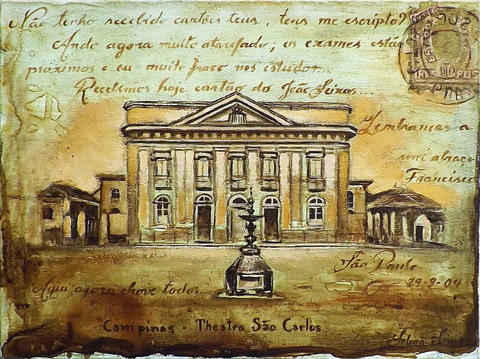 Não tenho recebido cartões teus, tens me escripto?
Ando agora muito atarefado; os exames estão
proximos e eu muito fraco nos estudos...
Recebemos hoje cartão do João Seixas...
Lembranças a
um abraço
Francisco
São Paulo
29-9-04
Aqui agora chove todos...
Campinas - Theatro São Carlos